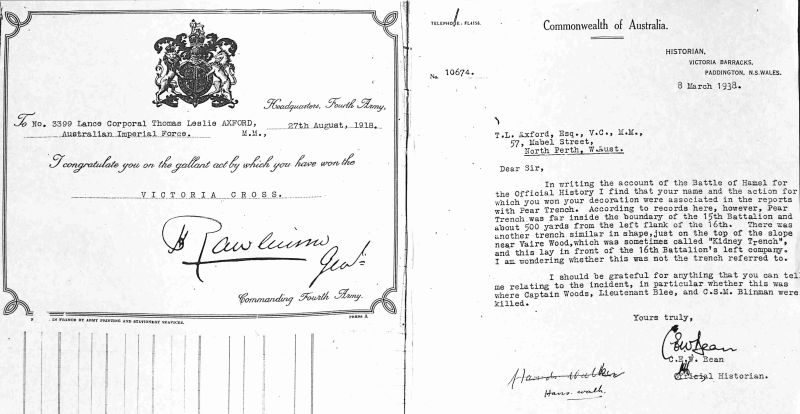 Headquarters, Fourth Army,
To No. 3399 Lance Corporal Thomas Leslie AXFORD,
Australian Imperial Force. M.M., 27th August, 1918.
I congratulate you on the gallant act by which you have won the
VICTORIA CROSS.
Rawlinson
Genl.
Commanding Fourth Army.
IN FRANCE BY ARMY PRINTING AND STATIONERY SERVICES. PRESS A
TELEPHONE: FL4156.
Commonwealth of Australia.
HISTORIAN,
VICTORIA BARRACKS,
PADDINGTON, N.S.WALES.
No. 10674.
8 March 1938.
T.L. Axford, Esq., V.C., M.M.,
57, Mabel Street,
North Perth, W.Aust.
Dear Sir,
In writing the account of the Battle of Hamel for
the Official History I find that your name and the action for
which you won your decoration were associated in the reports
with Pear Trench. According to records here, however, Pear
Trench was far inside the boundary of the 15th Battalion and
about 500 yards from the left flank of the 16th. There was
another trench similar in shape, just on the top of the slope
near Vaire Wood, which was sometimes called "Kidney Trench",
and this lay in front of the 16th Battalion's left company.
I am wondering whether this was not the trench referred to.
I should be grateful for anything that you can tell
me relating to the incident, in particular whether this was
where Captain Woods, Lieutenant Blee, and C.S.M. Blinman were
killed.
Yours truly,
C.E.W. Bean
C.E.W. Bean
Official Historian.